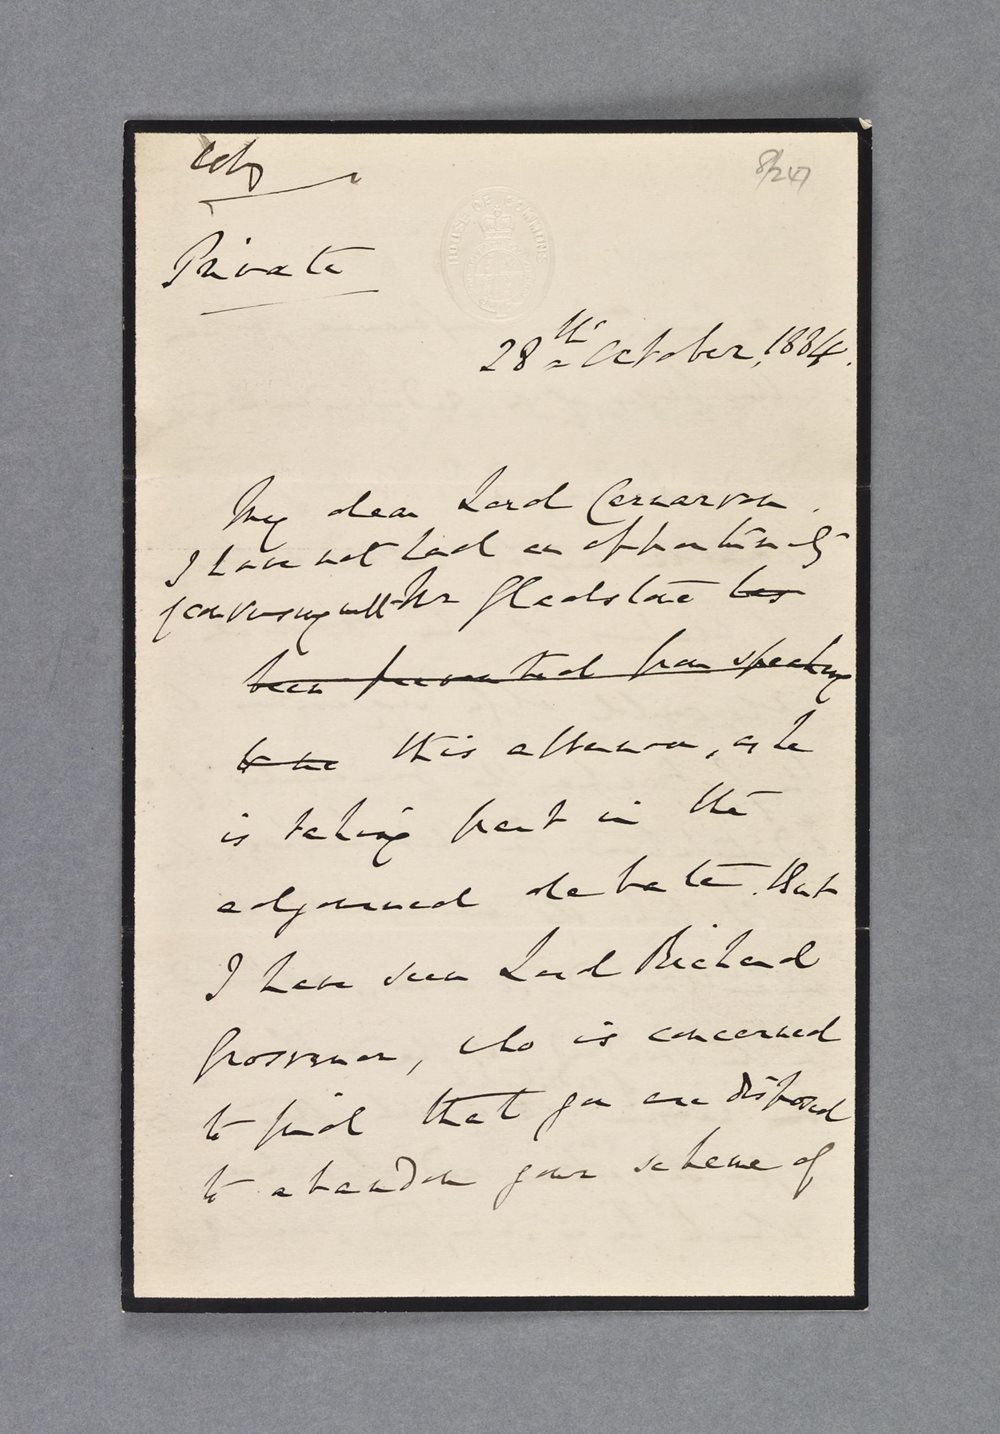 Copy
8/247
HOUSE OF COMMONS
Private
28th October, 1884.
My dear Lord Carnarvon.
I have not had an opportunity
of conversing with Mr Gladstone has
been prevented from speaking
to me this afternoon, as he
is taking part in the
adjourned debate. But
I have seen Lord Richard
Grosvenor, who is concerned
to find that you are disposed
to abandon your scheme of